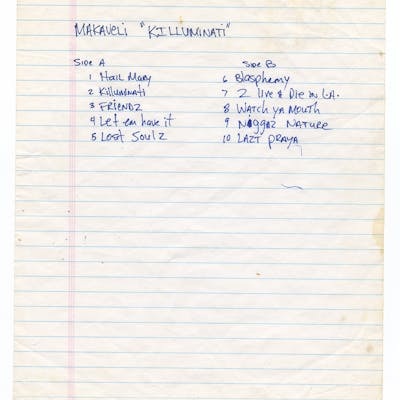 MAKAVELI "KILLUMINATI"
Side A
1 Hail Mary
2 Killuminati
3 FRIENDZ
4 Let em have it
5 Lost Soulz
Side B
6 Blasphemy
7 2 Live & Die in L.A.
8 WATCH YA MOUTH
9 Niggaz NATURE
10 LAZT PRAYA